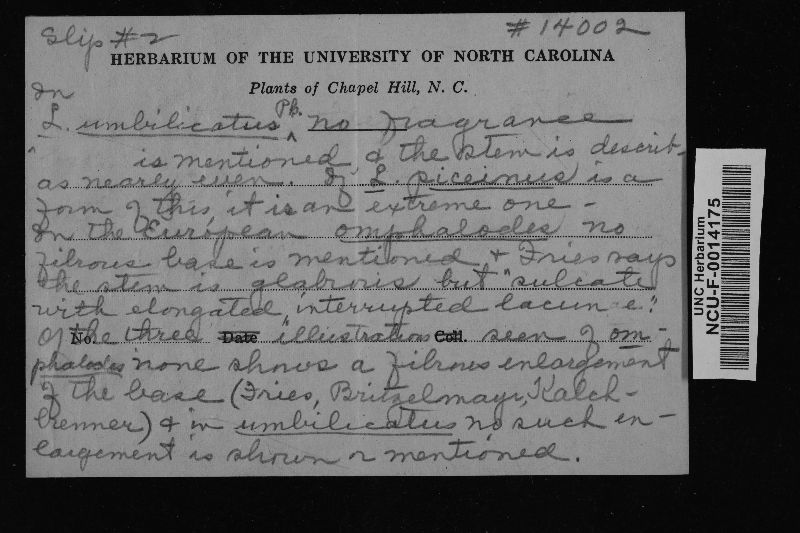 Slip #2 #14002
HERBARIUM OF THE UNIVERSITY OF NORTH CAROLINA
Plants of Chapel Hill, N. C.
In
L. umbilicatus Pk. no fragrance
is mentioned & the stem is describ-
as nearly even. If L. piceinus is a
form of this, it is an extreme one -
In the European omphalodes no
fibrous base is mentioned & Fries says
the stem is glabrous but "sulcate
with elongated, interrupted lacunae."
No. Date Coll.
Of the three illustrations seen of om-
phalodes none shows a fibrous enlargement
of the base (Fries, Britzelmayr, Kalch-
brenner) & in umbilicatus no such en-
largement is shown or mentioned.
UNC Herbarium
NCU-F-0014175